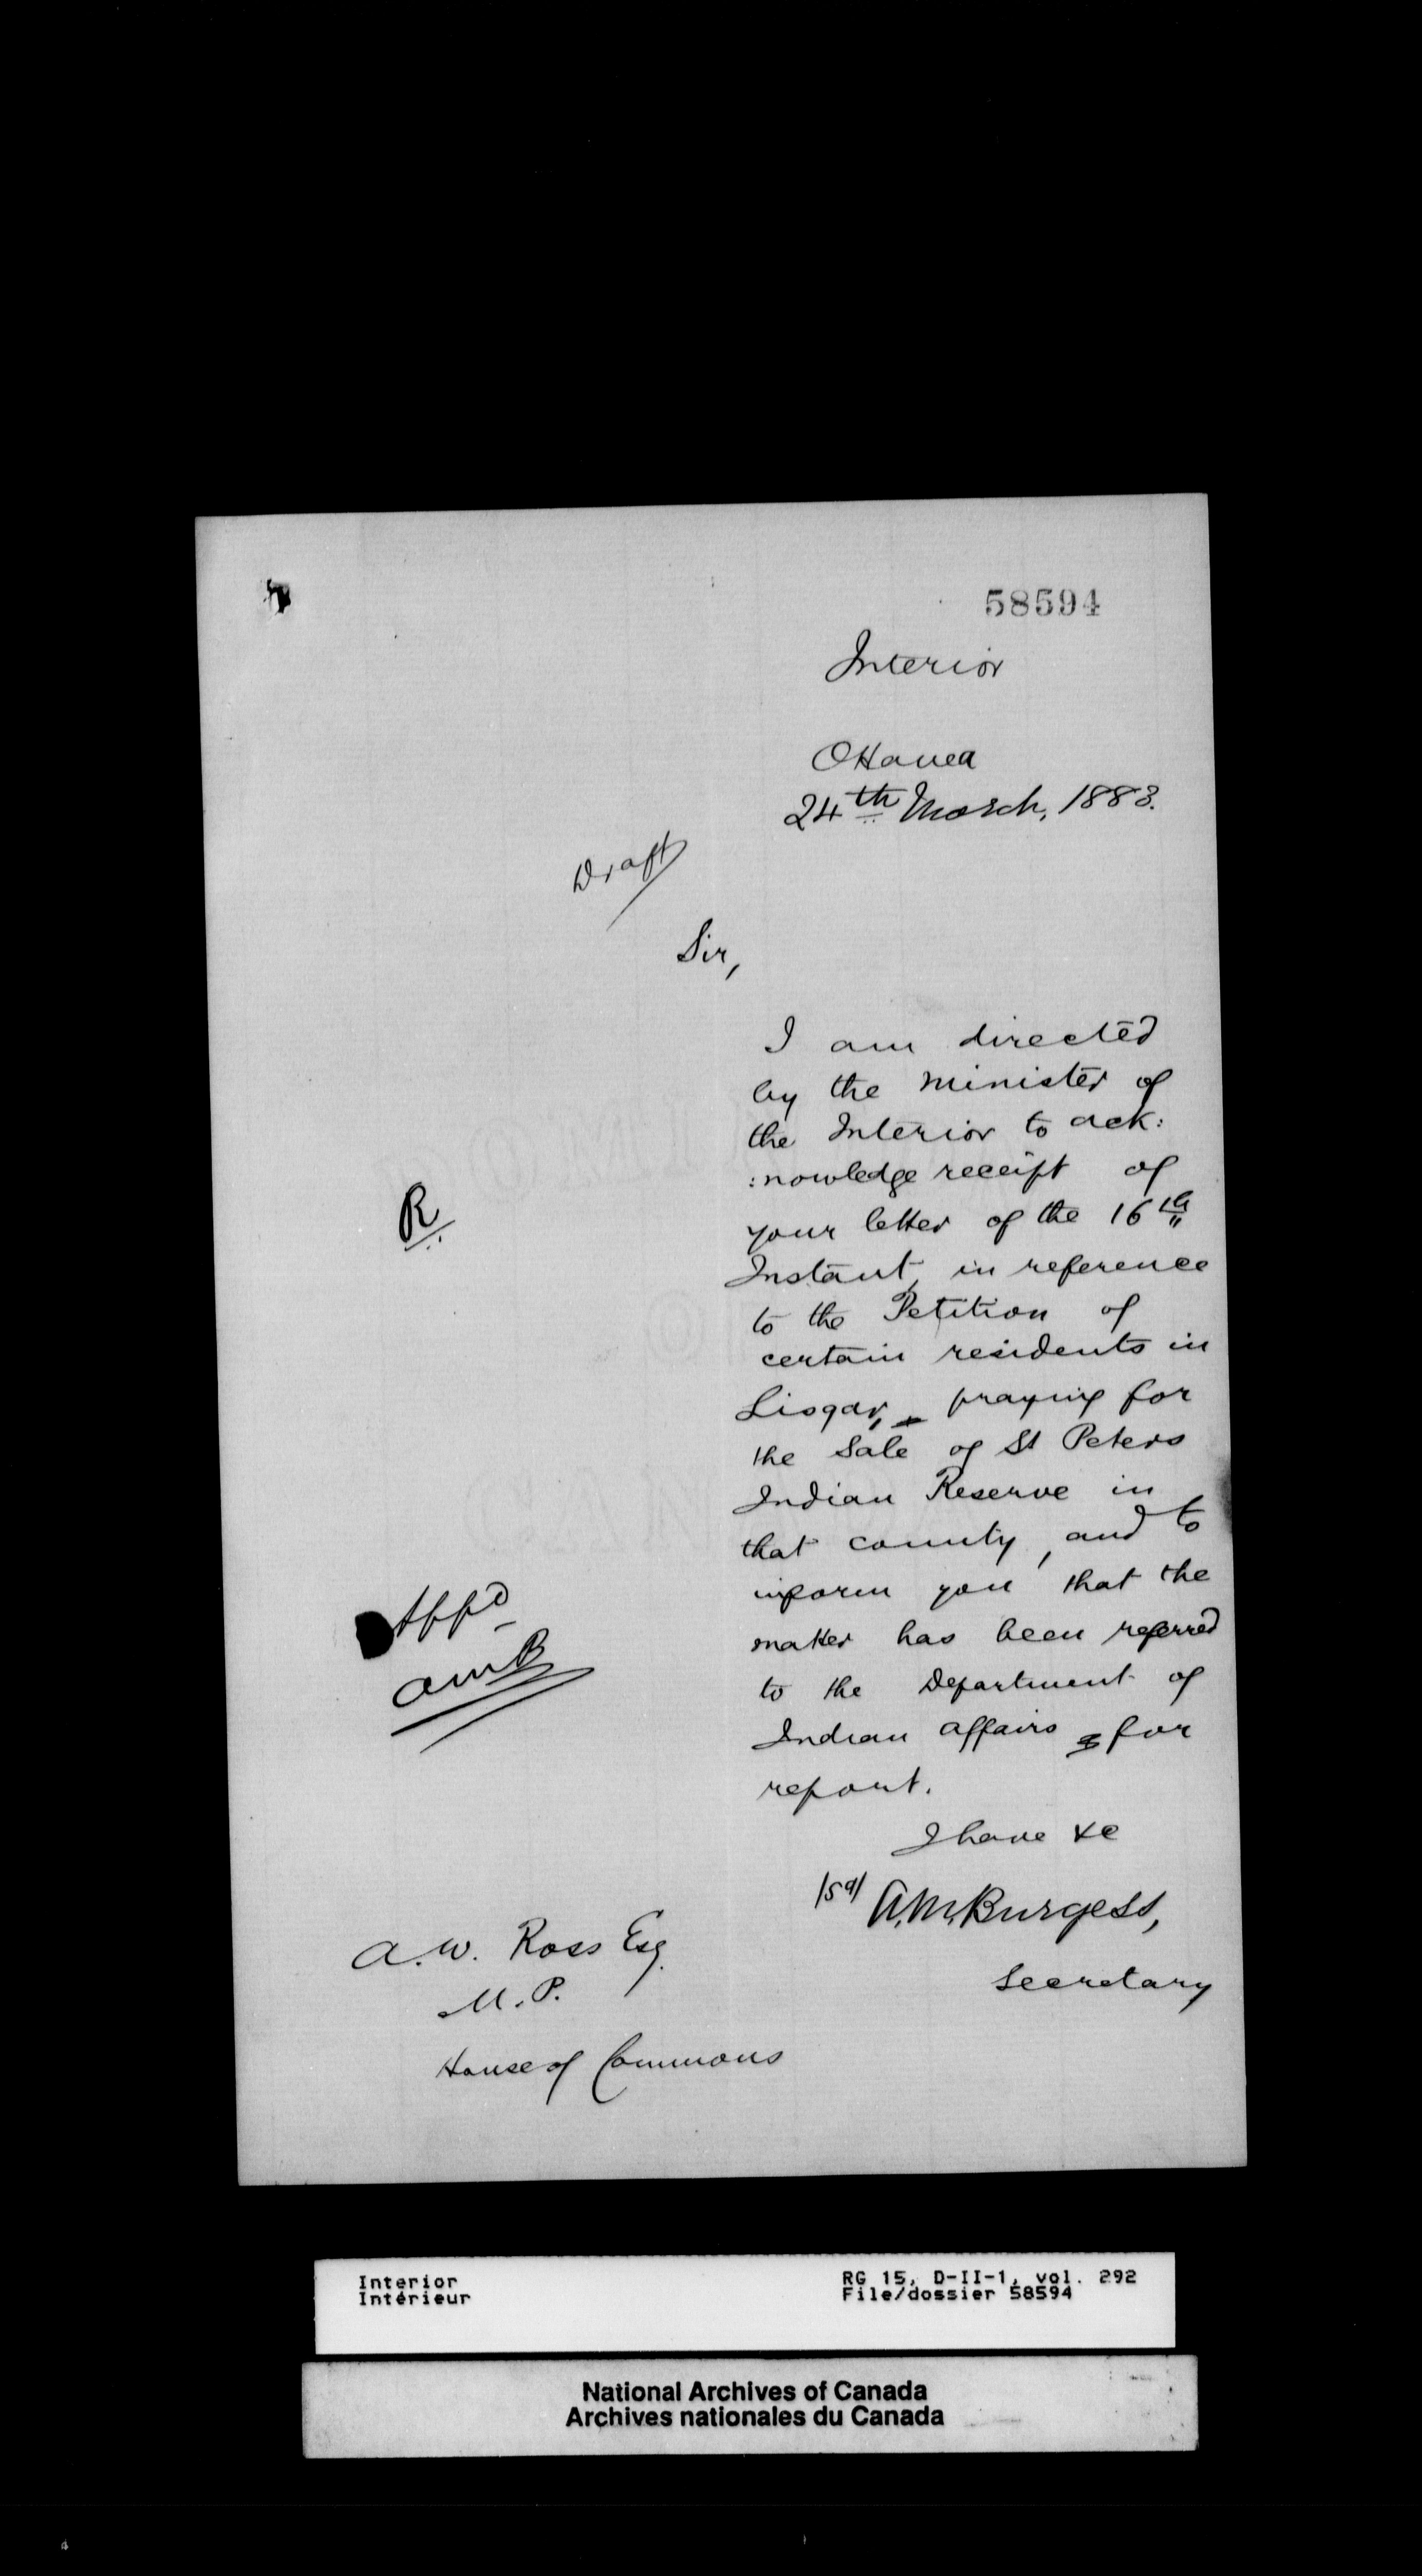 58594
Interior
Ottawa
24th March, 1883.
Draft
Sir,
I am directed
by the Minister of
the Interior to ack:
:nowledge receipt of
R
your letter of the 16th
Instant, in reference
to the Petition of
certain residents in
Lisgar, praying for
the Sale of St Peters
Indian Reserve in
that county, and to
inform you that the
Appd
matter has been referred
AMB
to the Department of
Indian Affairs for
report.
I have &c
/sd/ A.M. Burgess,
Secretary
A. W. Ross Esq.
M. P.
House of Commons
Interior
Intérieur
RG 15, D-II-1, vol. 292
File/dossier 58594
National Archives of Canada
Archives nationales du Canada